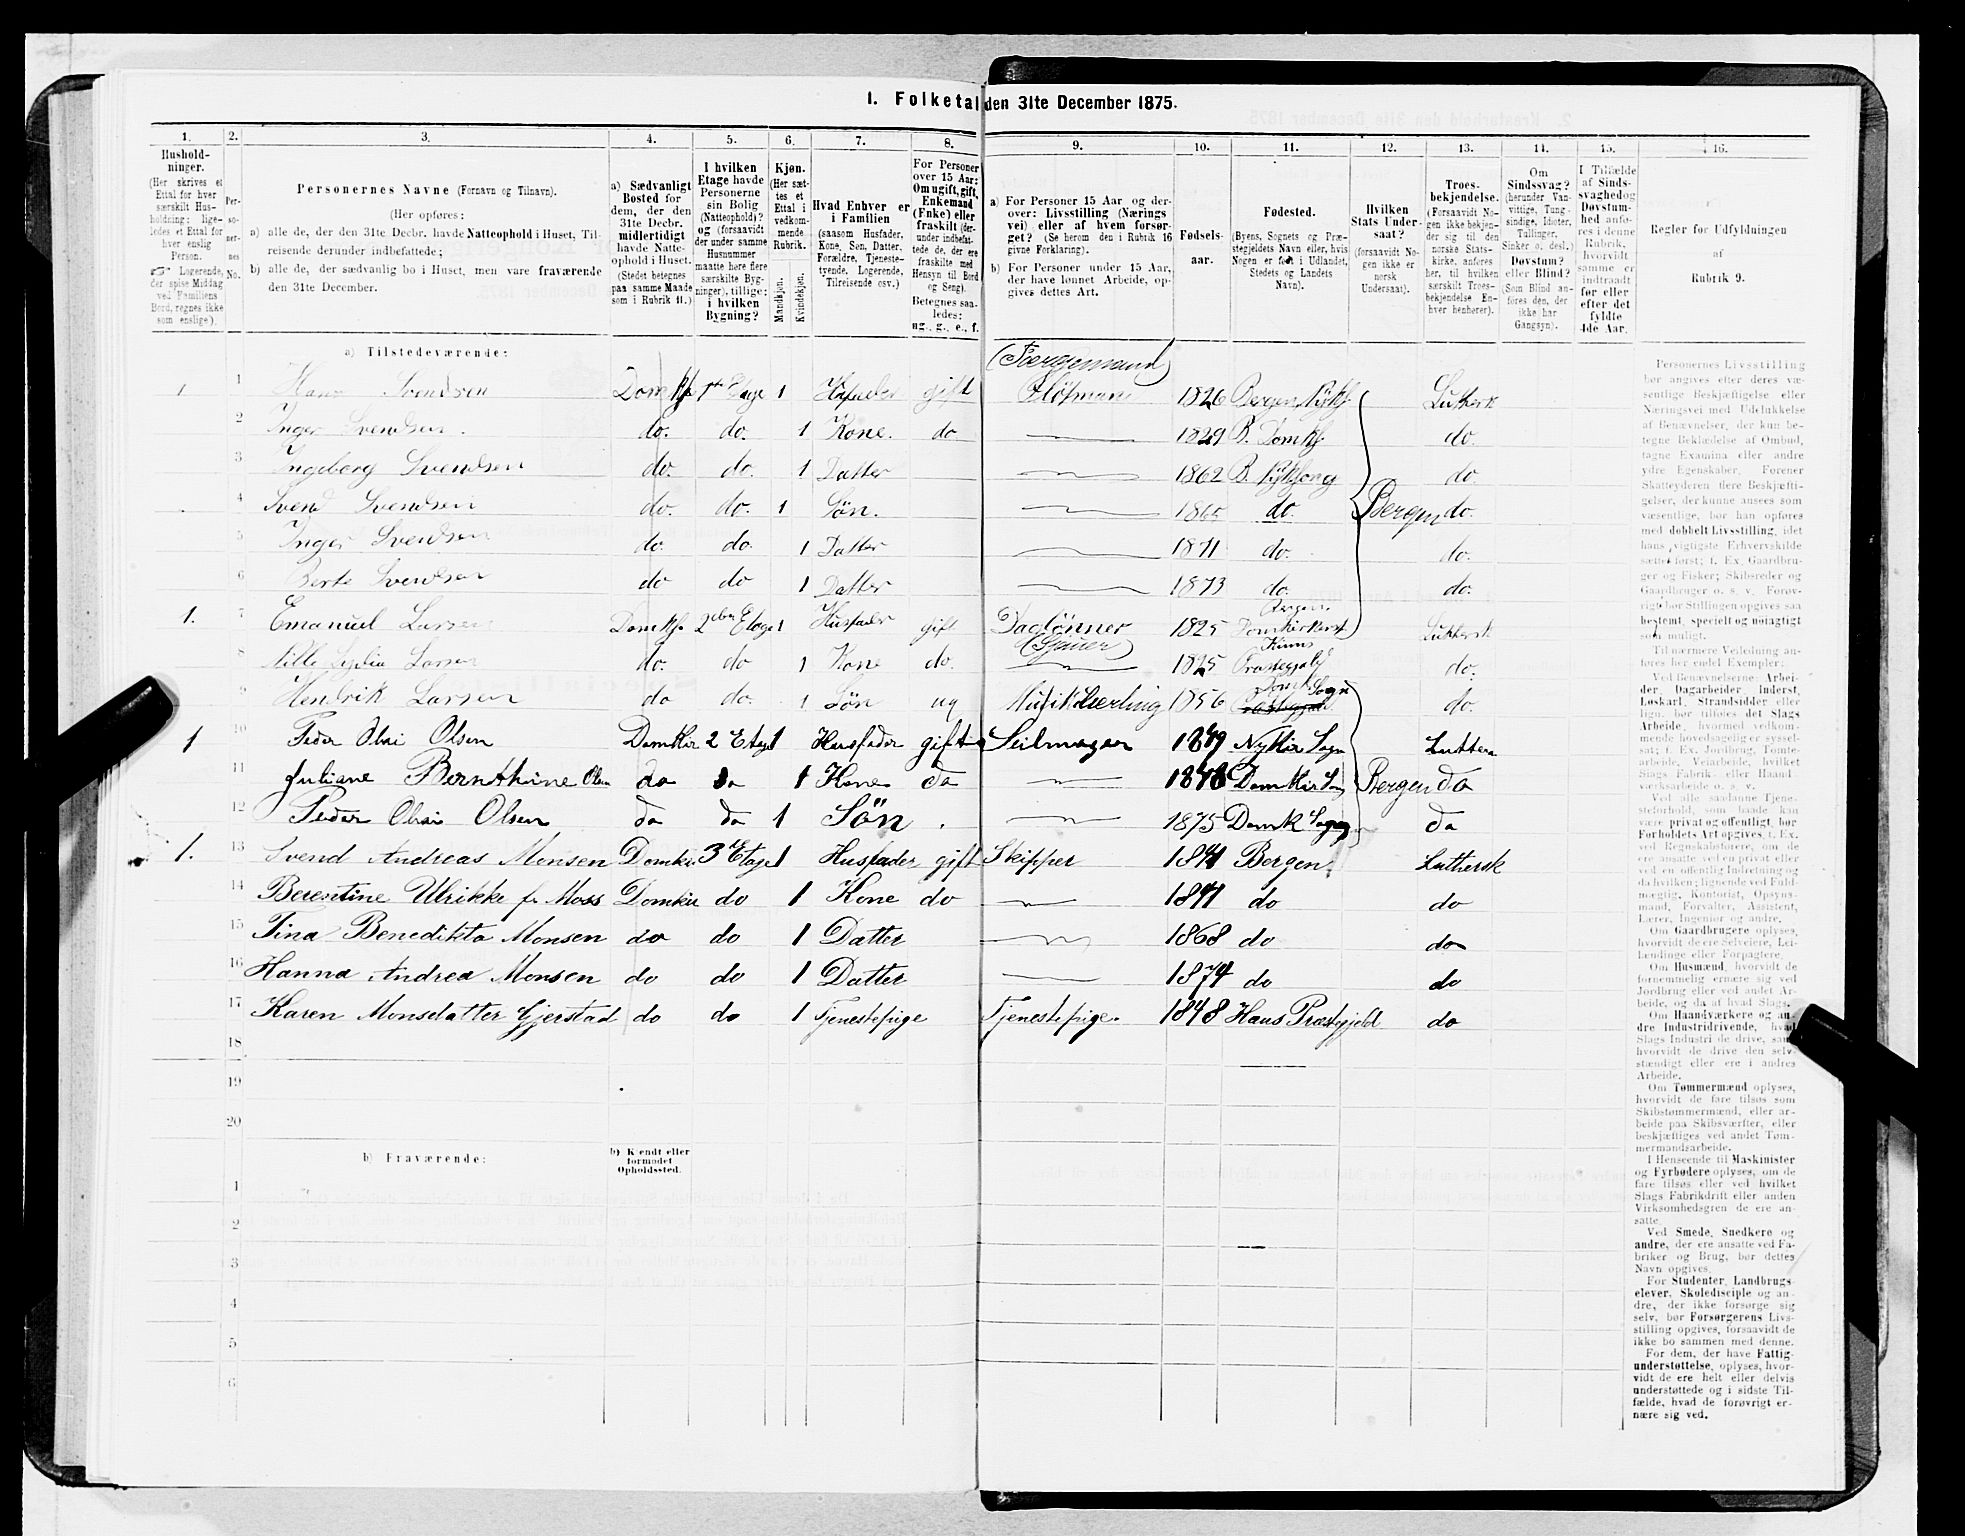 1. Folketal den 31te December 1875.
1. 2. 3. 4. 5. 6. 7. 8. 9. 10. 11. 12. 13. 14. 15. 16.
Hushold-
ninger.
(Her skrives et
Ettal for hver
særskilt Hus-
holdning; lige-
ledes et Ettal for
hver enslig
Person.
☞ Logerende,
der spise Middag
ved Familiens
Bord, regnes ikke
som enslige).
Per-
so-
ner-
nes
No.
Personernes Navne (Fornavn og Tilnavn).
(Her opføres:
a) alle de, der den 31te Decbr. havde Natteophold i Huset, Til-
reisende derunder indbefattede;
b) alle de, der sædvanlig bo i Huset, men vare fraværende
den 31te December.
a) Sædvanligt
Bosted for
dem, der den
31te Decbr.
midlertidigt
havde Natte-
ophold i Huset.
(Stedet betegnes
paa samme Maade
som i Rubrik 11.)
I hvilken
Etage havde
Personerne
sin Bolig
(Natteophold)?
og (forsaavidt
der under samme
Husnummer
maatte høre flere
særskilte Byg-
ninger), tillige:
i hvilken
Bygning?
Kjøn.
(Her sæt-
tes et
Ettal i
vedkom-
mende
Rubrik.
Mandkjøn.
Kvindekjøn.
Hvad Enhver er
i Familien
(saasom Husfader,
Kone, Søn, Datter,
Forældre, Tjeneste-
tyende, Logerende,
Tilreisende osv.)
For Personer
over 15 Aar:
Om ugift, gift,
Enkemand
(Enke) eller
fraskilt (der-
under indbefat-
tede de, der ere
fraskilte med
Hensyn til Bord
og Seng).
Betegnes saa-
ledes:
ug., g., e., f.
a) For Personer 15 Aar og der-
over: Livsstilling (Nærings
vei) eller af hvem forsør-
get? (Se herom den i Rubrik 16
givne Forklaring).
b) For Personer under 15 Aar,
der have lønnet Arbeide, op-
gives dettes Art.
Fødsels-
aar.
Fødested.
(Byens, Sognets og Præ-
stegjeldets Navn eller, hvis
Nogen er født i Udlandet,
Stedets og Landets
Navn).
Hvilken
Stats Under-
saat?
(forsaavidt No-
gen ikke er
norsk
Undersaat).
Troes-
bekjendelse.
(Forsaavidt No-
gen ikke bekjen-
der sig til den
norske Stats-
kirke, anføres
her, til hvilken
særskilt Troes-
bekjendelse En-
hver henhører).
Om
Sindssvag?
(herunder Van-
vittige, Tung-
sindige, Idioter,
Tullinger,
Sinker o. desl.)
Døvstum?
eller Blind?
(Som Blind an-
føres den, der
ikke har
Gangsyn).
I Tilfælde
af Sinds-
svaghed og
Døvstum-
hed anfø-
res i denne
Rubrik,
hvorvidt
samme er
indtraadt
før eller
efter det
fyldte
4de Aar.
Regler for Udfyldningen
af
Rubrik 9.
a) Tilstedeværende:
(Færgemand)
1 1 Hans Svendsen Domkk 1ste Etage 1 Husfader gift Flótmand 1826 Bergen Nykk. Luthersk
2 Inger Svendsen. do. do. 1 Kone. do 1829 B. Domkk. do.
3 Ingeborg Svendsen do. do. 1 Datter 1862 B. Nyk.sogn do.
4 Svend Svendsen do. do. 1 Søn. 1865 do. Bergen do.
5 Inger Svendsen do. do. 1 Datter 1871 do. do.
6 Berte Svendsen do do 1 Datter 1873 do. do.
1. 7 Emanuel Larsen Domkk. 2den Etage 1 Husfader gift Daglønner (Gjøuer) 1825 Bergens Domkirkesk Luthersk
8 Nille Lydia Larsen do. do 1 Kone do. 1825 Kinns Præstegjeld do.
9 Hendrik Larsen do do. 1 Søn ug Musiklærling 1856 Domk. Sogn do.
1 10 Peder Olai Olsen Domkir 2 Etage 1 Husfader gift Seilmager 1849 Nykir Sogn Luthera
11 Juliane Bernthine Olsen do do 1 Kone do 1848 Domkir Sog Bergen do
12 Peder Olai Olsen do do 1 Søn 1875 Domk Sogn do
1. 13 Svend Andreas Monsen Domkir 3 Etage 1 Husfader gift Skipper 1841 Bergen Luthersk
14 Berentine Ulrikke f. Moss Domkir do 1 Kone do 1841 do do
15 Tina Benedikta Monsen do do 1 Datter 1868 do do
16 Hanna Andrea Monsen do do 1 Datter 1874 do do
17 Karen Monsdatter Gjerstad do do 1 Tjenestepige Tjenestepige. 1848 Haus Præstegjeld do
18
19
20
b) Fraværende:
b) Kjendt eller
formodet
Opholdssted.
1
2
3
4
5
6
Personernes Livsstilling
bør angives efter deres væ-
sentlige Beskjæftigelse eller
Næringsvei med Udelukkelse
af Benævnelser, der kun be-
tegne Beklædelse af Ombud,
tagne Examina eller andre
ydre Egenskaber. Forener
Skatteyderen flere Beskjæfti-
gelser, der kunne ansees som
væsentlige, bør han opføres
med dobbelt Livsstilling, idet
hans vigtigste Erhvervskilde
sættes først; f. Ex. Gaardbru-
ger og Fisker; Skibsreder og
Gaardbruger o. s. v. Forøv-
rigt bør Stillingen opgives saa
bestemt, specielt og nøiagtigt
som muligt.
Til nærmere Veiledning an-
føres her endel Exempler:
Ved Benævnelserne: Arbei-
der, Dagarbeider, Inderst,
Løskarl, Strandsidder eller
lign. bør tilføies det Slags
Arbeide, hvormed vedkom-
mende hovedsagelig er syssel-
sat; f. Ex. Jordbrug, Tomte-
arbeide, Veiarbeide, hvilket
Slags Fabrik- eller Haand-
værksarbeide o. s. v.
Ved alle saadanne Tjene-
steforhold, som baade kan
være privat og offentligt, bør
Forholdets Art opgives, f. Ex.
ved Regnskabsførere, om de
ere ansatte ved en privat eller
ved en offentlig Indretning og
da hvilken; lignende ved Fuld-
mægtig, Kontorist, Opsyns-
mand, Forvalter, Assistent,
Lærer, Ingeniør og andre.
Om Gaardbrugere oplyses,
hvorvidt de ere Selveiere, Lei-
lændinge eller Forpagtere.
Om Husmænd, hvorvidt de
fornemmelig ernære sig ved
Jordbrug eller ved andet Ar-
beide, og da af hvad Slags.
Om Haandværkere og an-
dre Industridrivende, hvad
Slags Industri de drive, samt
hvorvidt de drive den selv-
stændigt eller ere i andres
Arbeide.
Om Tømmermænd oplyses,
hvorvidt de fare tilsøs som
Skibstømmermænd, eller ar-
beide paa Skibsværfter, eller
beskjæftiges ved andet Tøm-
mermandsarbeide.
I Henseende til Maskinister
og Fyrbødere oplyses, om de
fare tilsøs eller ved hvilket
Slags Fabrikdrift eller anden
Virksomhedsgren de ere an-
satte.
Ved Smede, Snedkere og
andre, der ere ansatte ved Fa-
briker og Brug, bør dettes
Navn opgives.
For Studenter, Landbrugs-
elever, Skoledisciple og an-
dre, der ikke forsørge sig
selv, bør Forsørgerens Livs-
stilling opgives, forsaavidt de
ikke bo sammen med denne.
For dem, der have Fattig-
understøttelse, oplyses, hvor-
vidt de ere helt eller delvis
understøttede og i sidste Til-
fælde, hvad de forøvrigt er-
nære sig ved.